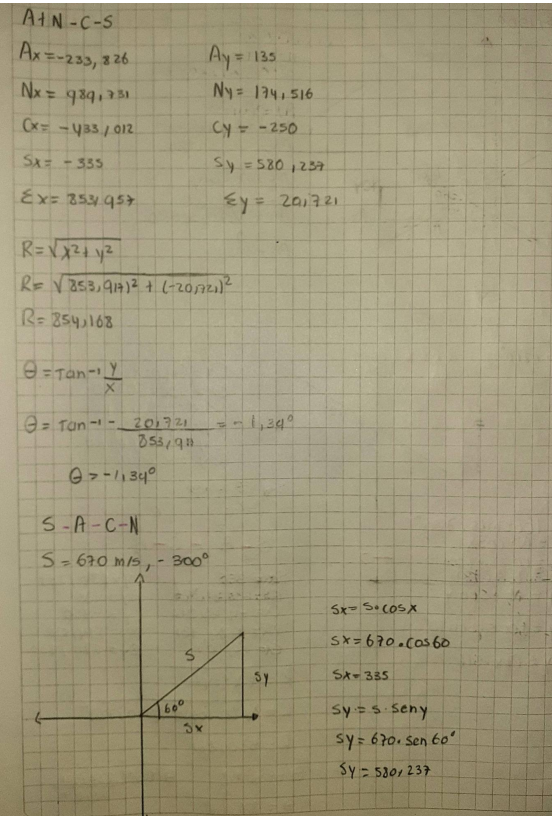 A+N-C-S
Ax=-233,826 Ay= 135
Nx= 989,731 Ny= 174,516
Cx= -433,012 Cy= -250
Sx= -335 Sy=580,237
Σx= 853,957 Σy= 20,721
R=√x²+y²
R= √853,917)² + (-20,721)²
R= 854,168
θ=Tan-¹ y/x
θ= Tan-¹ - 20,721/853,911 = -1,34°
θ=-1,34°
S-A-C-N
S=670 m/s, -300°
S
Sy
60°
Sx
Sx= S•cosx
Sx=670.Cos60
Sx=335
Sy=s.Seny
Sy=670.sen60°
Sy=580,237